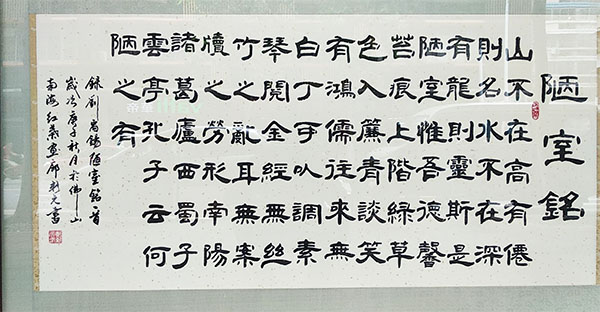 陋室銘
山不在高有僊
則名水不在深
有龍則靈斯是
陋室惟吾德馨
苔痕上階綠草
色入簾青談笑
有鴻儒往來無
白丁可以調素
琴閱金經無絲
竹之亂耳無案
牘之勞形南陽
諸葛廬西蜀子
雲亭孔子云何
陋之有
錄劉禹錫陋室銘一首
歲次庚子秋月於佛山
南海紅葉畫廊文書